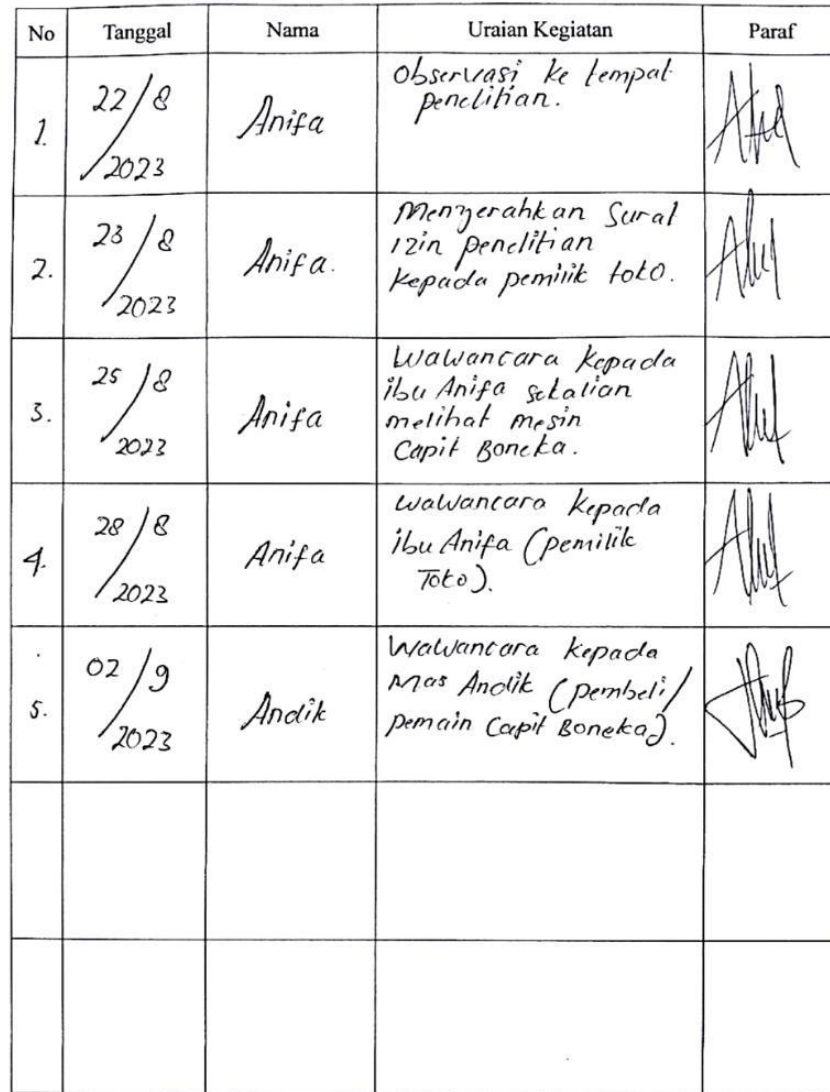 No Tanggal Nama Uraian Kegiatan Paraf
1. 22/8/2023 Anifa Observasi ke tempat
penelitian.
2. 23/8/2023 Anifa. Menyerahkan Surat
izin penelitian
kepada pemilik toko.
3. 25/8/2023 Anifa Wawancara kepada
ibu Anifa sekalian
melihat mesin
Capit Boneka.
4. 28/8/2023 Anifa Wawancara kepada
ibu Anifa (pemilik
Toko).
5. 02/9/2023 Andik Wawancara kepada
Mas Andik (pembeli/
pemain Capit Boneka).